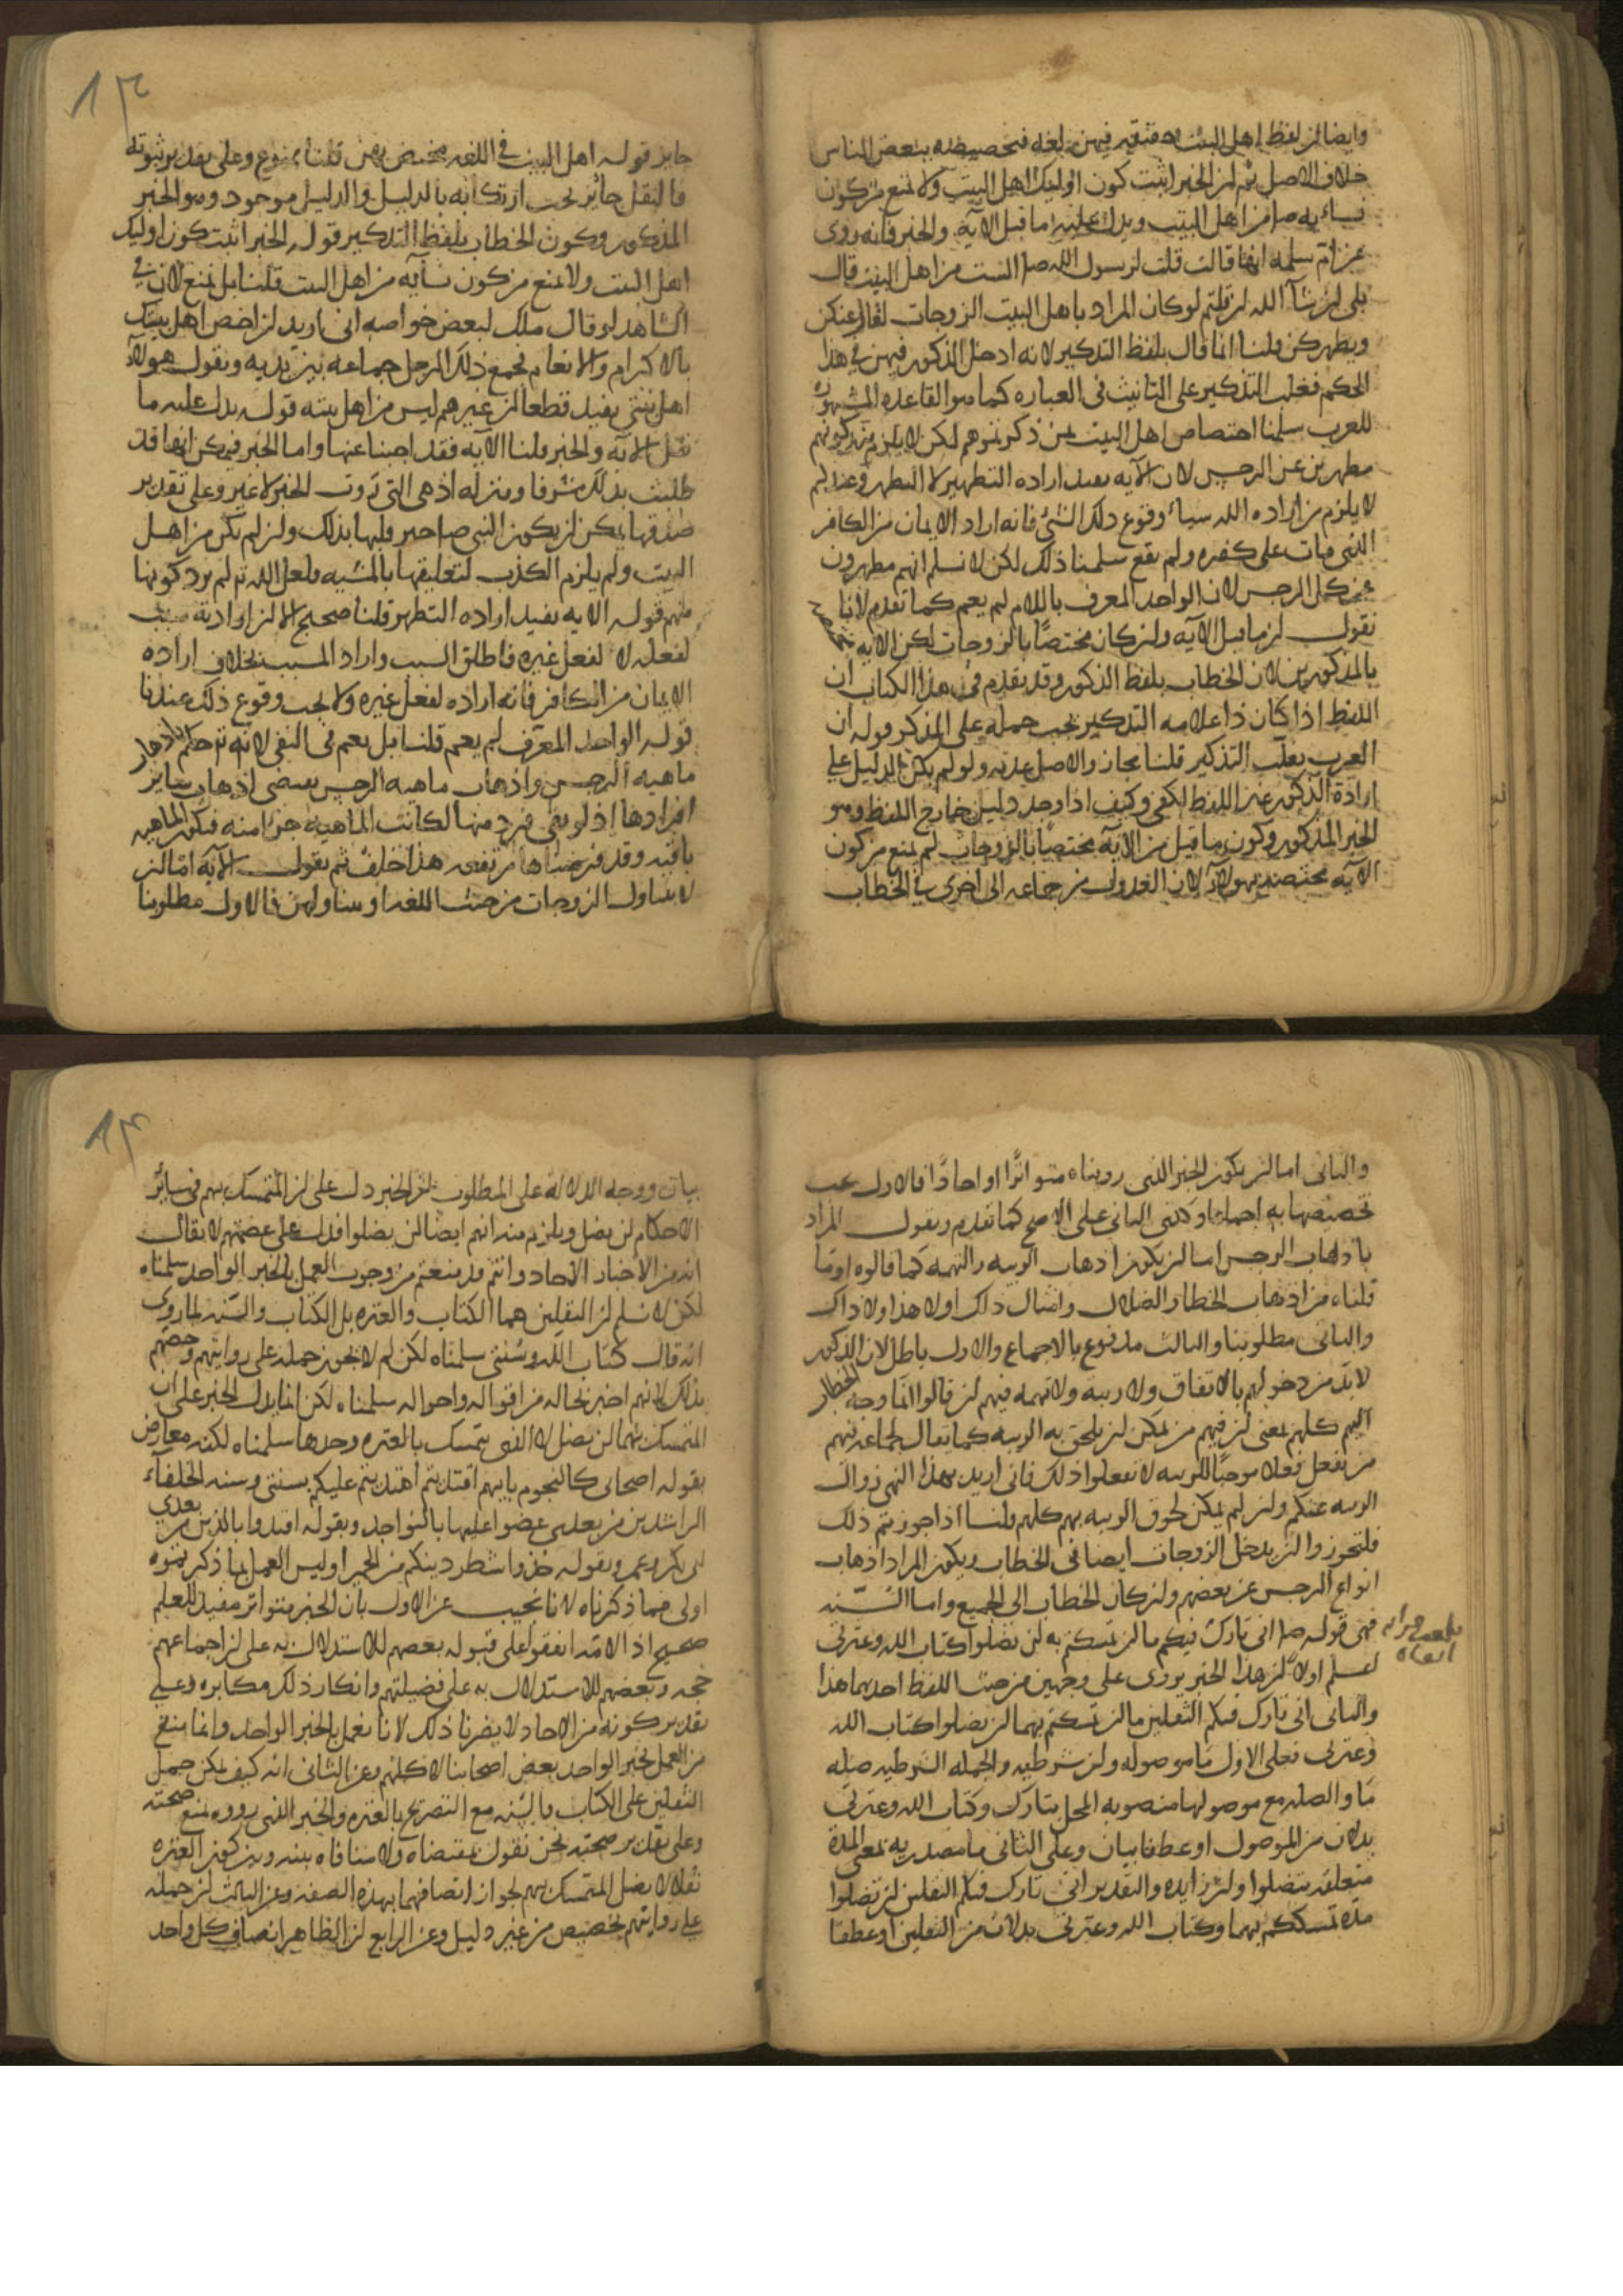 وايضا لان لفظ اهل البيت حقيقة فيهن لغة فتخصيصه ببعض الناس
خلاف الاصل ثم ان الخبر اثبت كون اوليك اهل البيت ولا يمنع من كون
نسايه صلم من اهل البيت ويدل عليه ما قبل الآية والخبر فانه روى
عن ام سلمه انها قالت قلت لرسول الله صلم الست من اهل البيت قال
بلى ان شآ الله لن قلتم لو كان المراد باهل البيت الزوجات لقال عنكن
ويطهركن قلنا انما قال بلفظ التذكير لانه ادخل المذكور فيهن في هذا
الحكم فغلب التذكير على التانيث فى العباره كما هو القاعده المشهوره
للعرب سلمنا اختصاص اهل البيت بمن ذكرتموهم لكن لا يلزم منه كونهم
مطهرين عن الرجس لان الآيه تفيد اراده التطهير لا التطهر وعندكم
لا يلزم من اراده الله شياء وقوع ذلك الشئ فانه اراد الايمان من الكافر
الذى مات على كفره ولم يقع سلمنا ذلك لكن لا نسلم انهم مطهرون
عن كل الرجس لان الواحد المعرف باللام لم يعم كما تقدم لانا
نقول ان ما قبل الآيه ولن كان مختصًا بالزوجات لكن الآيه مختصه
بالمذكورين لان الخطاب بلفظ الذكور وقد تقدم فى هذا الكتاب ان
اللفظ اذا كان ذا علامه التذكير يجب حمله على المذكر قوله ان
العرب يغلب التذكير قلنا مجاز والاصل عدمه ولو لم يكن الدليل على
ارادة الذكور غير اللفظ لكفى وكيف اذا وجد دليل خارج اللفظ وهو
الخبر المذكور وكون ما قبل من الآية مختصًا بالزوجات لم يمنع من كون
الآيه مختصة بهولآء لان العدول من جماعه الى اخرى في الخطاب
جايز قوله اهل البيت في اللغه مختص بهن قلنا ممنوع وعلى تقدير ثبوته
فالنقل جائز يجب ارتكابه بالدليل والدليل موجود وهو الخبر
المذكور وكون الخطاب بلفظ التذكير قوله الخبر اثبت كون اوليك
اهل البيت ولا يمنع من كون نسآيه من اهل البيت قلنا بل يمنع لان في
الشاهد لو قال ملك لبعض خواصه انى اريد لن اخص اهل بيتك
بالاكرام والانعام فجمع ذلك الرجل جماعه بين يديه ويقول هولآء
اهل بيتي يفيد قطعا لن غيرهم ليس من اهل بيته قوله يدل عليه ما
قبل الآيه والخبر قلنا الآيه فقد اجبنا عنها واما الخبر فيمكن انها قد
طلبت بذلك شرفا ومنزله اذ هى التى روت الخبر لا غير وعلى تقدير
صدقها يمكن لن يكون النبى صلم اخبر قلبها بذلك ولن لم تكن من اهل
البيت ولم يلزم الكذب لتعليقها بالمشيه ولعل الله تع لم يرد كونها
منهم قوله الآيه يفيد اراده التطهر قلنا صحيح الا لن ارادته سبب
لفعله لا لفعل غيره فاطلق السبب واراد المسبب بخلاف اراده
الايمان من الكافر فانه اراده لفعل غيره ولا يجب وقوع ذلك عندنا
قوله الواحد المعرف لم يعم قلنا بل يعم فى النفى لانه تع حكم باذهاب
ماهيه الرجس واذهاب ماهيه الرجس يقتضى اذهاب سائر
افرادها اذ لو بقى فرد منها لكانت الماهيه جزا منه فيكون الماهيه
باقيه وقد فرضناها مرتفعه هذا خلف ثم نقول الآيه اما لن
لا يتناول الزوجات من حيث اللغه او يتناولهن فالاول مطلوبنا
والثانى اما لن يكون الخبر الذى رويناه متواترًا او احادًا فالاول يجب
تخصيصها به اجماعا وكذى الثانى على الاصح كما تقدم ونقول المراد
باذهاب الرجس اما لن يكون اذهاب الريبه والتهمه كما قالوه او ما
قلناه من اذهاب الخطا والضلال وامثال ذلك او لا هذا ولا ذاك
والثانى مطلوبنا والثالث مدفوع بالاجماع والاول باطل لان الذكور
لا بد من دخولهم بالاتفاق ولا ريبه ولا تهمه فيهم لن قالوا انما وجه الخطاب
اليهم كلهم بمعنى لن فيهم من يمكن لن يلحق به الريبه كما يقال لجماعه فيهم
من يفعل فعلا موجبًا للريبه لا تفعلوا ذلك فانى اريد بهذا النهى زوال
الريبه عنكم ولن لم يمكن لحوق الريبه بهم كلهم قلنا اذا جوزتم ذلك
فلتجوزوا لن يدخل الزوجات ايضا فى الخطاب ويكون المراد اذهاب
انواع الرجس عن بعضهم ولن كان الخطاب الى الجميع واما السنه
فهى قوله صلم انى تارك فيكم ما لن تمسكتم به لن تضلوا كتاب الله وعترتى
لعلم اولآ لن هذا الخبر يروى على وجهين من حيث اللفظ احدهما هذا
والثانى انى تارك فيكم الثقلين ما لن تمسكتم بهما لن تضلوا كتاب الله
وعترتى فعلى الاول ما موصوله ولن شرطيه والجمله الشرطيه صله
ما والصله مع موصولها منصوبه المحل بتارك وكتاب الله وعترتى
بدلان من الموصول او عطفا بيان وعلى الثانى ما مصدريه بمعنى المدة
متعلقه بتضلوا ولن زايده والتقدير انى تارك فيكم الثقلين لن تضلوا
مدة تمسككم بهما وكتاب الله وعترتى بدلان من الثقلين او عطفا
بيان ووجه الدلالة على المطلوب لن الخبر دل على لن المتمسك بهم فى سائر
الاحكام لن يضل ويلزم منه انهم ايضا لن يضلوا فدل على عصمتهم لا يقال
انه من الاخبار الآحاد وانتم قد منعتم من وجوب العمل بالخبر الواحد سلمناه
لكن لا نسلم لن الثقلين هما الكتاب والعتره بل الكتاب والسنه لما روى
انه قال كتاب الله وسنتى سلمناه لكن لم لا يجوز حمله على روايتهم وخصهم
بذلك لانهم اخبر بحاله من اقواله واحواله سلمناه لكن انما يدل الخبر على ان
المتمسك بهما لن يضل لا الذى يتمسك بالعتره وحدها سلمناه لكنه معارض
بقوله اصحابى كالنجوم بايهم اقتديتم اهتديتم عليكم بسنتى وسنه الخلفآء
الراشدين من بعدى عضوا عليها بالنواجد وبقوله اقتدوا بالذين من بعدى
ابى بكر وعمر وبقوله خذوا شطر دينكم من الحميرا وليس العمل بما ذكرتموه
اولى مما ذكرناه لانا نجيب عن الاول بان الخبر متواتر مفيد للعلم
صحيح اذ الامه اتفقوا على قبوله بعضهم للاستدلال به على لن اجماعهم
حجه وبعضهم للاستدلال به على فضيلتهم وانكار ذلك مكابره وعلى
تقدير كونه من الآحاد لا يضرنا ذلك لانا نعمل بالخبر الواحد وانما يمنع
من العمل بخبر الواحد بعض اصحابنا لا كلهم وعن الثانى انه كيف يمكن حمل
الثقلين على الكتاب والسنه مع التصريح بالعتره والخبر الذى رووه نمنع صحته
وعلى تقدير صحته نحن نقول بمقتضاه ولا منافاه بينه وبين كون العتره
ثقلا لا يضل المتمسك بهم لجواز اتصافهما بهذه الصفه وعن الثالث لن حمله
على روايتهم تخصيص من غير دليل وعن الرابع لن الظاهر اتصاف كل واحد